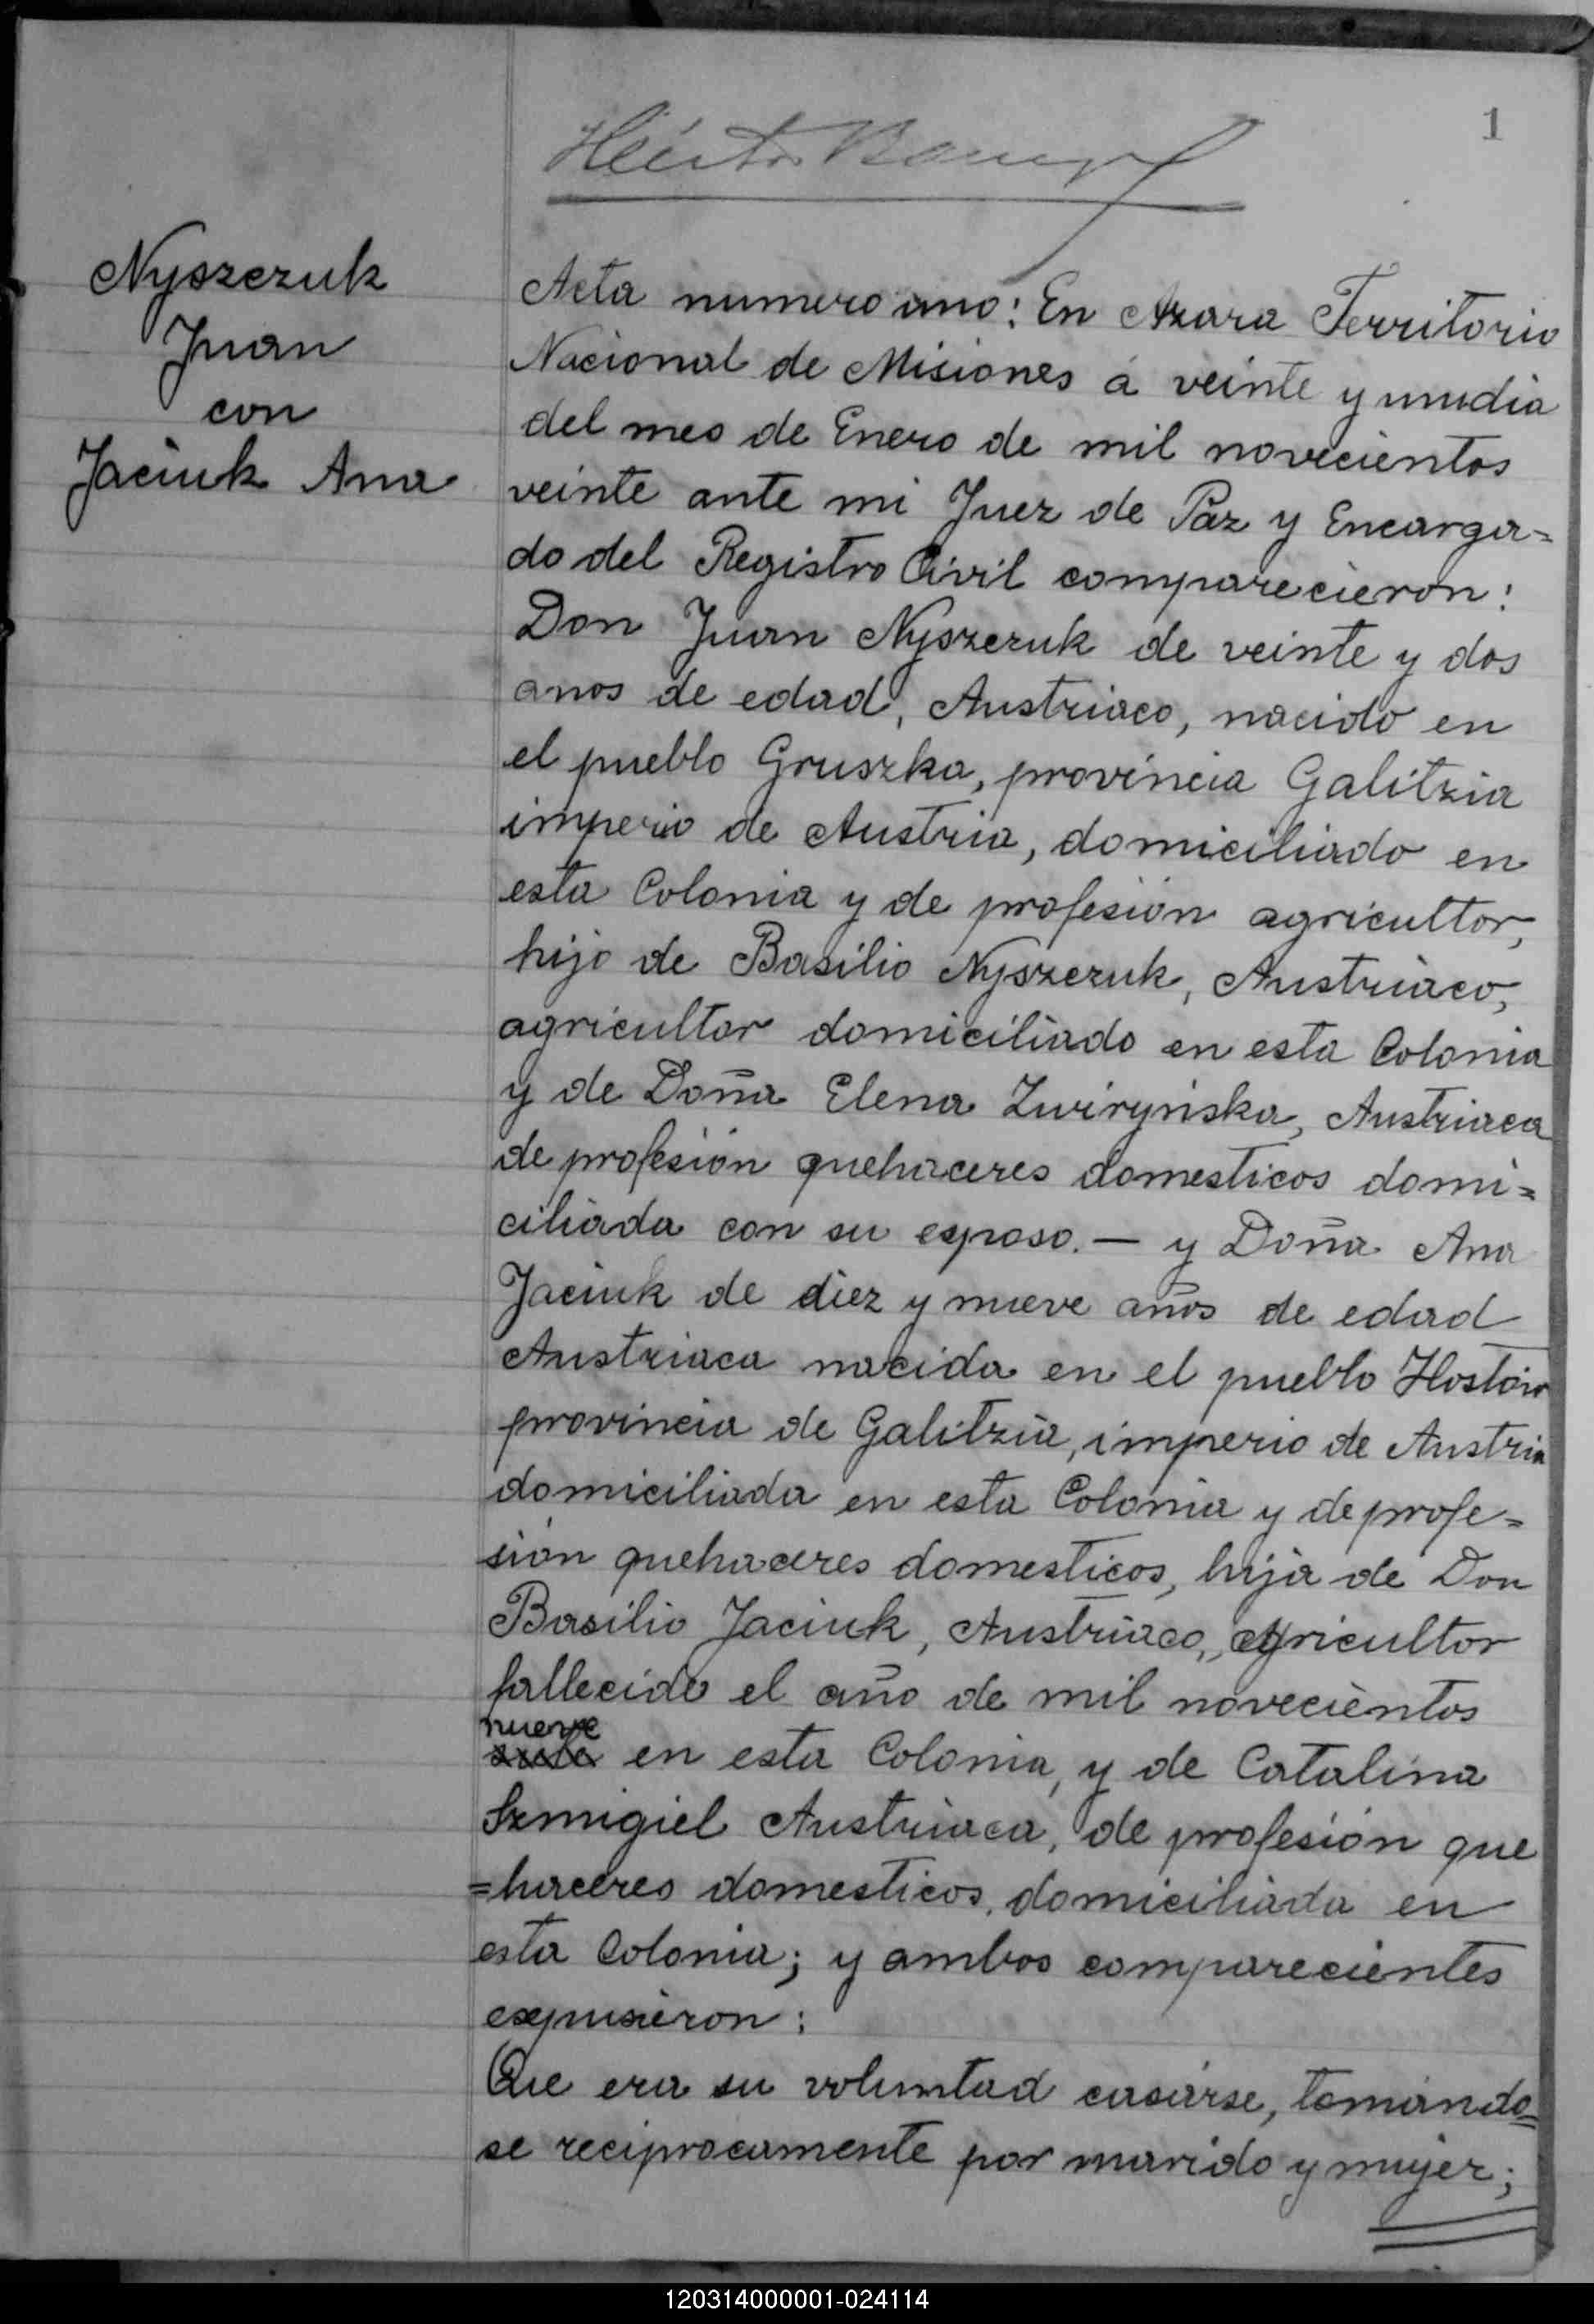 1
Héctor
Nyszczuk
Juan
con
Jaciuk Ana
Acta numero uno: En Azara Territorio
Nacional de Misiones á veinte y un dia
del mes de Enero de mil novecientos
veinte ante mi Juez de Paz y Encarga=
do del Registro Civil comparecieron:
Don Juan Nyszczuk de veinte y dos
anos de edad, Austriaco, nacido en
el pueblo Gruszka, provincia Galitzia
imperio de Austria, domiciliado en
esta Colonia y de profesión agricultor,
hijo de Basilio Nyszczuk, Austriaco,
agricultor domiciliado en esta Colonia
y de Doña Elena Zwiryńska, Austriaca
de profesión quehaceres domesticos domi=
ciliada con su esposo. — y Doña Ana
Jaciuk de diez y nueve años de edad
Austriaca nacida en el pueblo
provincia de Galitzia, imperio de Austria
domiciliada en esta Colonia y de profe=
sión quehaceres domesticos, hija de Don
Basilio Jaciuk, Austriaco, agricultor
fallecido el año de mil novecientos
nueve
en esta Colonia, y de Catalina
Szmigiel Austriaca, de profesión que
=haceres domesticos, domiciliada en
esta Colonia; y ambos comparecientes
expusieron:
Que era su voluntad casarse, tomándo=
se reciprocamente por marido y mujer;
120314000001-024114